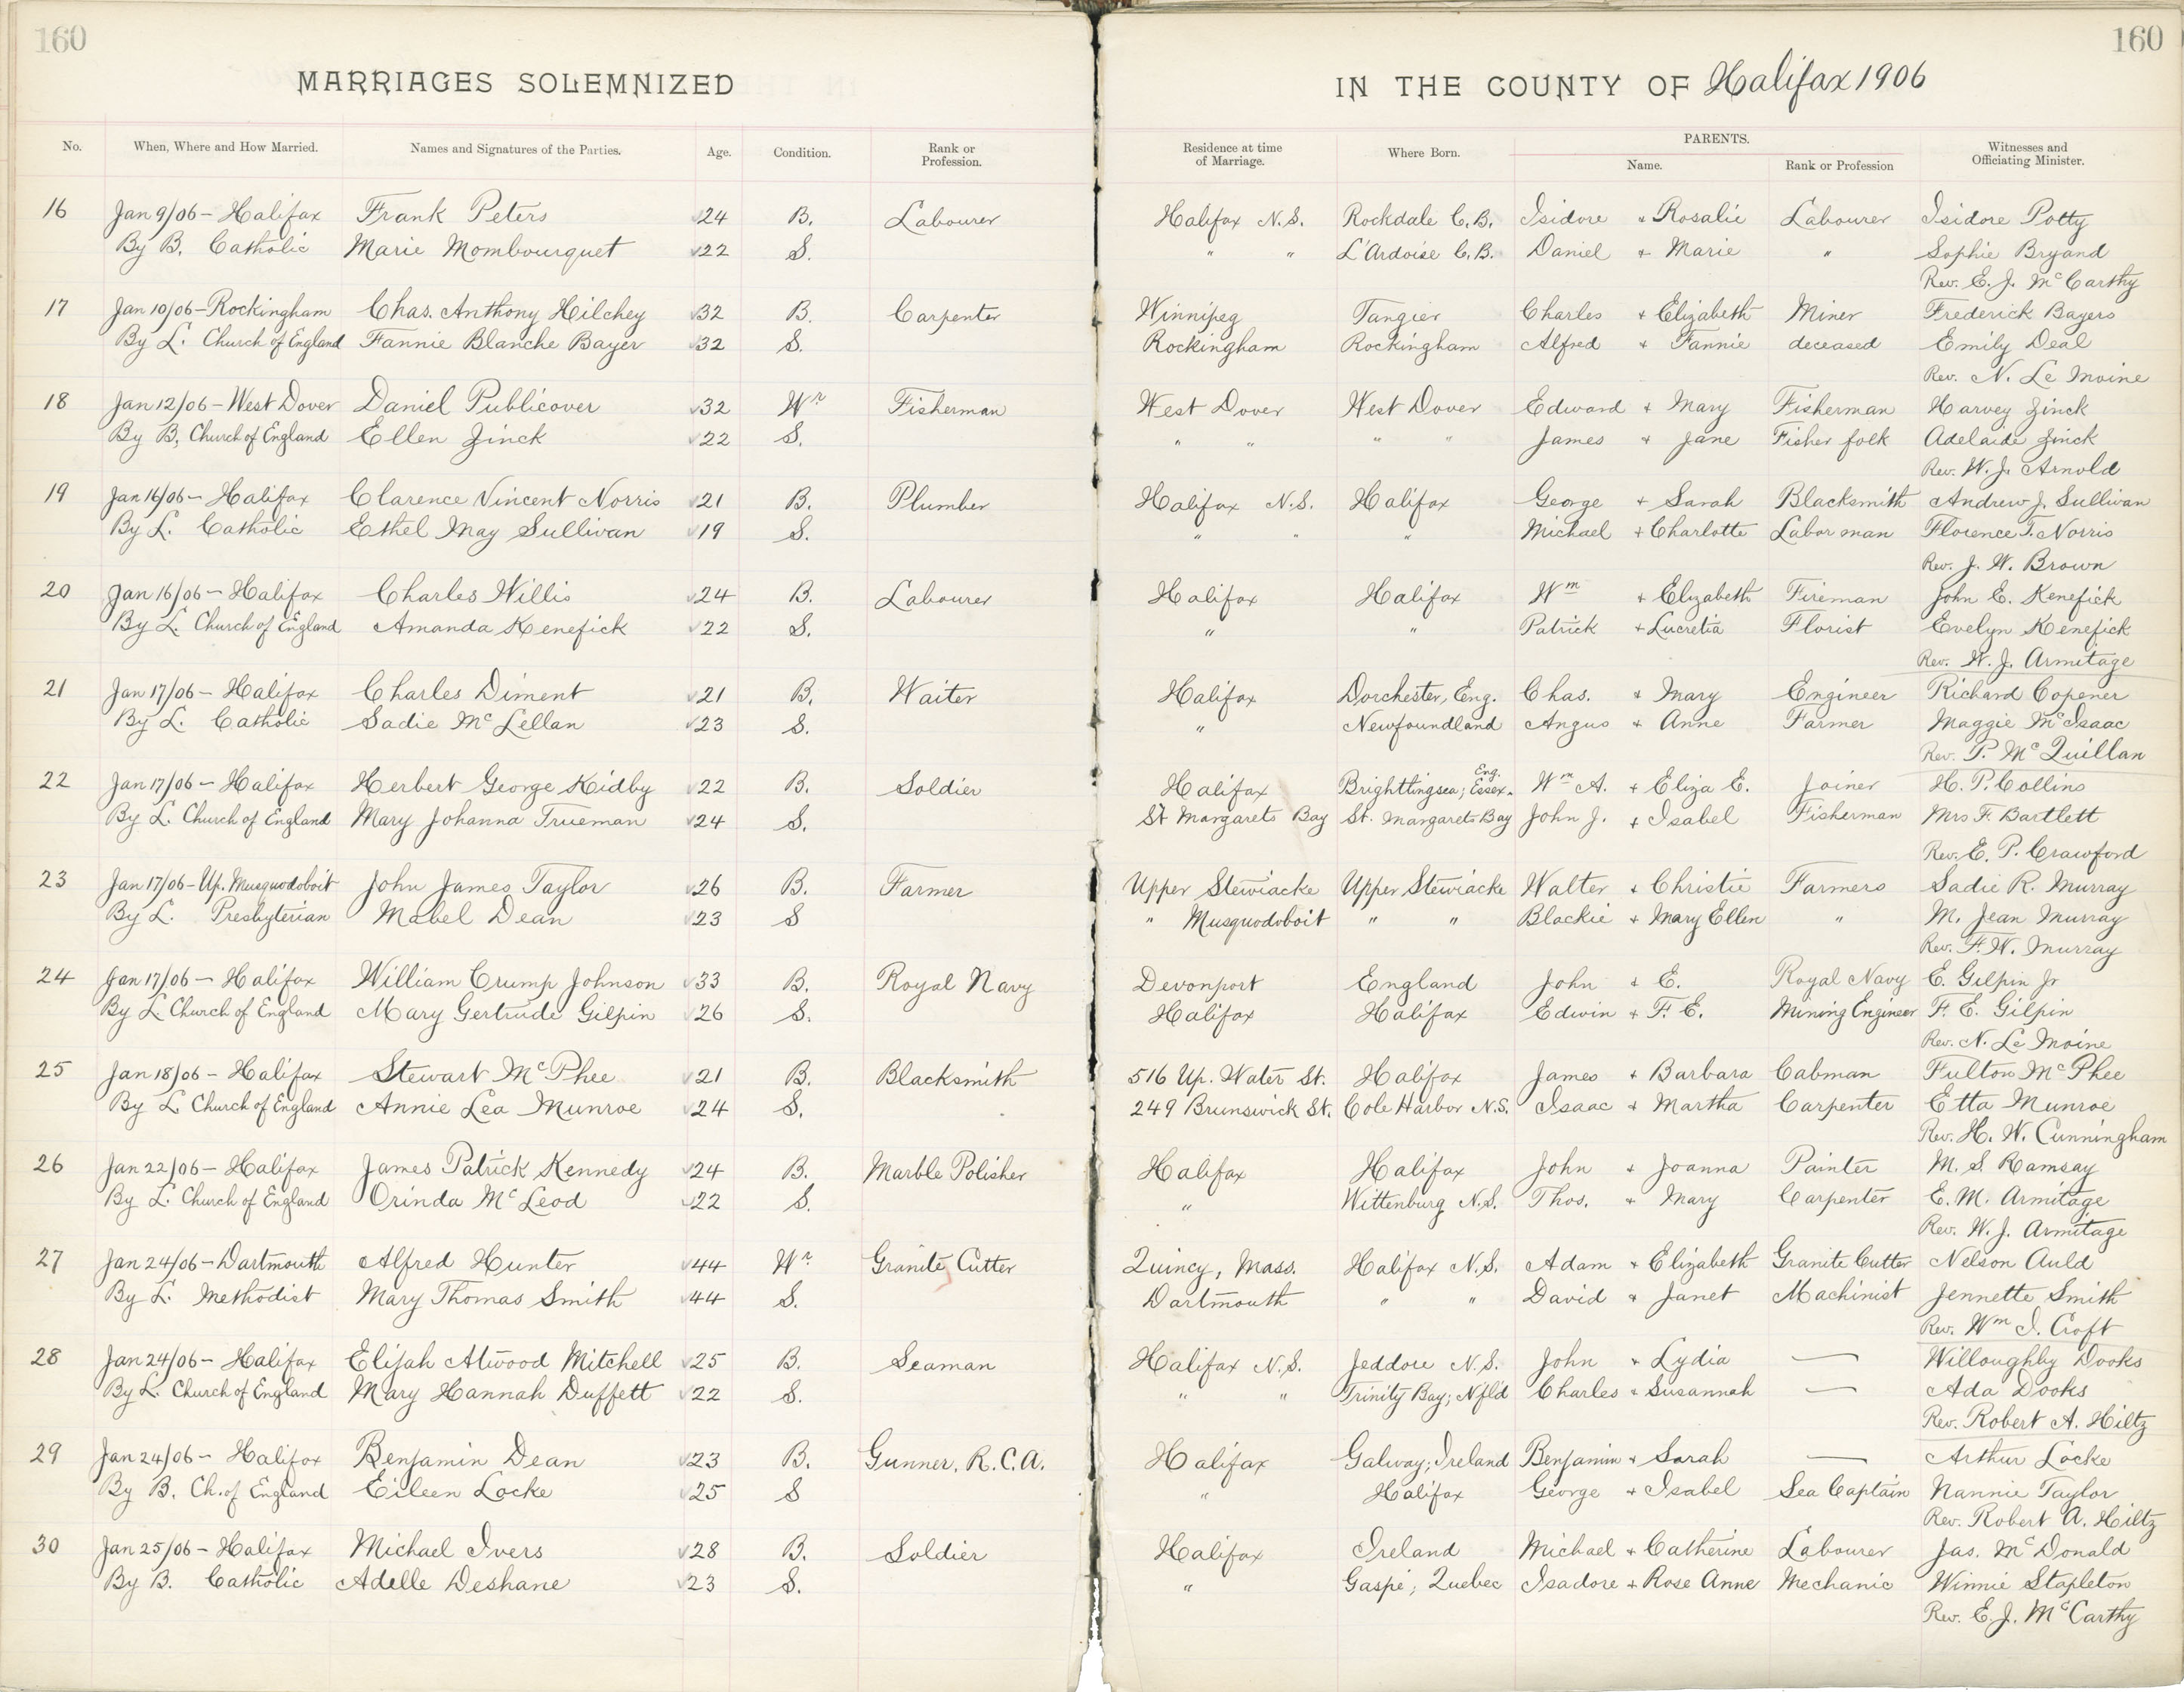 160 160
MARRIAGES SOLEMNIZED IN THE COUNTY OF Halifax 1906
No. When, Where and How Married. Names and Signatures of the Parties. Age. Condition. Rank or Profession. Residence at time of Marriage. Where Born. PARENTS. Name. Rank or Profession Witnesses and Officiating Minister.
16 Jan 9/06 - Halifax Frank Peters 24 B. Labourer Halifax N.S. Rockdale C.B. Isidore + Rosalie Labourer Isidore Potty
By B. Catholic Marie Mombourquet 22 S. " " L'Ardoise C.B. Daniel + Marie " Sophie Bryand
Rev. E. J. McCarthy
17 Jan 10/06 - Rockingham Chas. Anthony Hilchey 32 B. Carpenter Winnipeg Tangier Charles + Elizabeth Miner Frederick Bayers
By L. Church of England Fannie Blanche Bayer 32 S. Rockingham Rockingham Alfred + Fannie deceased Emily Deal
Rev. N. Le Moine
18 Jan 12/06 - West Dover Daniel Publicover 32 Wr Fisherman West Dover West Dover Edward + Mary Fisherman Harvey Zinck
By B, Church of England Ellen Zinck 22 S. " " " " James + Jane Fisher folk Adelaide Zinck
Rev. W. J. Arnold
19 Jan 16/06 - Halifax Clarence Vincent Norris 21 B. Plumber Halifax N.S. Halifax George + Sarah Blacksmith Andrew J. Sullivan
By L. Catholic Ethel May Sullivan 19 S. " " " Michael + Charlotte Labor man Florence T. Norris
Rev. J. W. Brown
20 Jan 16/06 - Halifax Charles Willis 24 B. Labourer Halifax Halifax Wm + Elizabeth Fireman John E. Kenefick
By L. Church of England Amanda Kenefick 22 S. " " Patrick + Lucretia Florist Evelyn Kenefick
Rev. W. J. Armitage
21 Jan 17/06 - Halifax Charles Diment 21 B. Waiter Halifax Dorchester, Eng. Chas. + Mary Engineer Richard Copener
By L. Catholic Sadie McLellan 23 S. " Newfoundland Angus + Anne Farmer Maggie McIsaac
Rev. P. McQuillan
22 Jan 17/06 - Halifax Herbert George Kidby 22 B. Soldier Halifax Brightlingsea; Essex. Eng. Wm A. + Eliza E. Joiner H. P. Collins
By L. Church of England Mary Johanna Trueman 24 S. St Margarets Bay St. Margarets Bay John J. + Isabel Fisherman Mrs F. Bartlett
Rev. E. P. Crawford
23 Jan 17/06 - Up. Musquodoboit John James Taylor 26 B. Farmer Upper Stewiacke Upper Stewiacke Walter + Christie Farmers Sadie R. Murray
By L. Presbyterian Mabel Dean 23 S " Musquodoboit " " Blackie + Mary Ellen " M. Jean Murray
Rev. F. W. Murray
24 Jan 17/06 - Halifax William Crump Johnson 33 B. Royal Navy Devonport England John + E. Royal Navy E. Gilpin Jr
By L. Church of England Mary Gertrude Gilpin 26 S. Halifax Halifax Edwin + F. E. Mining Engineer F. E. Gilpin
Rev. N. Le Moine
25 Jan 18/06 - Halifax Stewart McPhee 21 B. Blacksmith 516 Up. Water St. Halifax James + Barbara Cabman Fulton McPhee
By L. Church of England Annie Lea Munroe 24 S. 249 Brunswick St. Cole Harbor N.S. Isaac + Martha Carpenter Etta Munroe
Rev. H. W. Cunningham
26 Jan 22/06 - Halifax James Patrick Kennedy 24 B. Marble Polisher Halifax Halifax John + Joanna Painter M. S. Ramsay
By L. Church of England Orinda McLeod 22 S. " Wittenburg N.S. Thos. + Mary Carpenter E. M. Armitage
Rev. W. J. Armitage
27 Jan 24/06 - Dartmouth Alfred Hunter 44 Wr Granite Cutter Quincy, Mass. Halifax N.S. Adam + Elizabeth Granite Cutter Nelson Auld
By L. Methodist Mary Thomas Smith 44 S. Dartmouth " " David + Janet Machinist Jennette Smith
Rev. Wm I. Croft
28 Jan 24/06 - Halifax Elijah Atwood Mitchell 25 B. Seaman Halifax N.S. Jeddore N.S. John + Lydia — Willoughby Dooks
By L. Church of England Mary Hannah Duffett 22 S. " " Trinity Bay; Nfld Charles + Susannah — Ada Dooks
Rev. Robert A. Hiltz
29 Jan 24/06 - Halifax Benjamin Dean 23 B. Gunner, R.C.A. Halifax Galway; Ireland Benjamin + Sarah — Arthur Locke
By B. Ch. of England Eileen Locke 25 S " Halifax George + Isabel Sea Captain Nannie Taylor
Rev. Robert A. Hiltz
30 Jan 25/06 - Halifax Michael Ivers 28 B. Soldier Halifax Ireland Michael + Catherine Labourer Jas. McDonald
By B. Catholic Adelle Deshane 23 S. " Gaspé; Quebec Isadore + Rose Anne Mechanic Winnie Stapleton
Rev. E. J. McCarthy